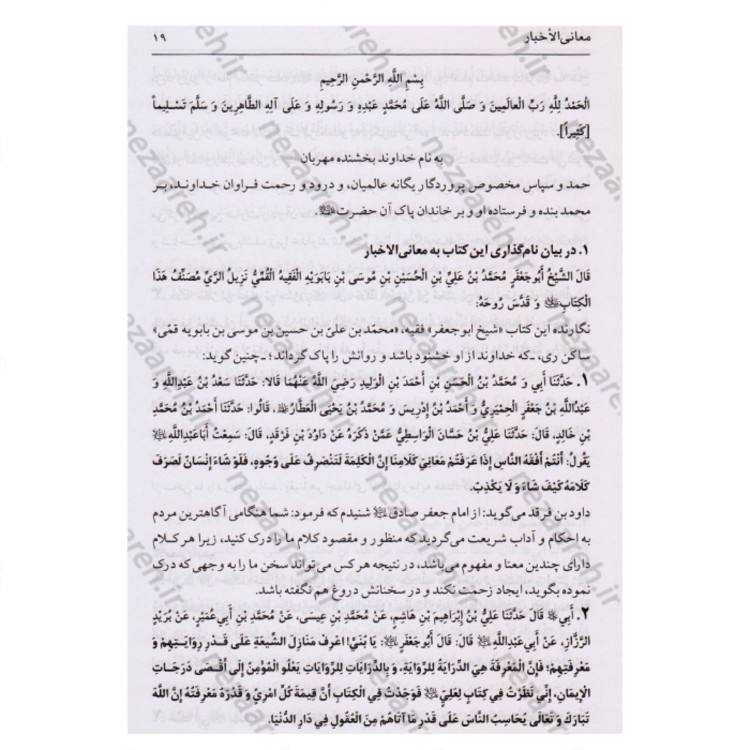 معانی‌الأخبار ۱۹
بِسْمِ اللَّهِ الرَّحْمَنِ الرَّحِيمِ
الْحَمْدُ لِلَّهِ رَبِّ الْعَالَمِينَ وَ صَلَّى اللَّهُ عَلَى مُحَمَّدٍ عَبْدِهِ وَ رَسُولِهِ وَ عَلَى آلِهِ الطَّاهِرِينَ وَ سَلَّمَ تَسْلِيماً
[كَثِيراً].
به نام خداوند بخشنده مهربان
حمد و سپاس مخصوص پروردگار یگانه عالمیان، و درود و رحمت فراوان خداوند، بر
محمد بنده و فرستاده او و بر خاندان پاک آن حضرت‌ﷺ.
۱. در بیان نام‌گذاری این کتاب به معانی‌الاخبار
قَالَ الشَّيْخُ أَبُو جَعْفَرٍ مُحَمَّدُ بْنُ عَلِيِّ بْنِ الْحُسَيْنِ بْنِ مُوسَى بْنِ بَابَوَيْهِ الْفَقِيهُ الْقُمِّيُّ نَزِيلُ الرَّيِّ مُصَنِّفُ هَذَا
الْكِتَابِ وَ قَدَّسَ رُوحَهُ:
نگارنده این کتاب «شیخ ابوجعفر» فقیه، «محمّد بن علیّ بن حسین بن موسی بن بابویه قمّی»
ساکن ری، ـ که خداوند از او خشنود باشد و روانش را پاک گرداند؛ ـ چنین گوید:
۱. حَدَّثَنَا أَبِي وَ مُحَمَّدُ بْنُ الْحَسَنِ بْنِ أَحْمَدَ بْنِ الْوَلِيدِ رَضِيَ اللَّهُ عَنْهُمَا قَالا: حَدَّثَنَا سَعْدُ بْنُ عَبْدِاللَّهِ وَ
عَبْدُاللَّهِ بْنُ جَعْفَرٍ الْحِمْيَرِيُّ وَ أَحْمَدُ بْنُ إِدْرِيسَ وَ مُحَمَّدُ بْنُ يَحْيَى الْعَطَّارُ، قَالُوا: حَدَّثَنَا أَحْمَدُ بْنُ مُحَمَّدِ
بْنِ خَالِدٍ، قَالَ: حَدَّثَنَا عَلِيُّ بْنُ حَسَّانَ الْوَاسِطِيُّ عَمَّنْ ذَكَرَهُ عَنْ دَاوُدَ بْنِ فَرْقَدٍ، قَالَ: سَمِعْتُ أَبَاعَبْدِاللَّهِ
يَقُولُ: أَنْتُمْ أَفْقَهُ النَّاسِ إِذَا عَرَفْتُمْ مَعَانِيَ كَلَامِنَا إِنَّ الْكَلِمَةَ لَتَنْصَرِفُ عَلَى وُجُوهٍ، فَلَوْ شَاءَ إِنْسَانٌ لَصَرَفَ
كَلَامَهُ كَيْفَ شَاءَ وَ لَا يَكْذِبُ.
داود بن فرقد می‌گوید: از امام جعفر صادق شنیدم که فرمود: شما هنگامی آگاهترین مردم
به احکام و آداب شریعت می‌گردید که منظور و مقصود کلام ما را درک کنید، زیرا هر کلام
دارای چندین معنا و مفهوم می‌باشد، در نتیجه هر کس می‌تواند سخن ما را به وجهی که درک
نموده بگوید، ایجاد زحمت نکند و در سخنانش دروغ هم نگفته باشد.
۲. أَبِي قَالَ حَدَّثَنَا عَلِيُّ بْنُ إِبْرَاهِيمَ بْنِ هَاشِمٍ، عَنْ مُحَمَّدِ بْنِ عِيسَى، عَنْ مُحَمَّدِ بْنِ أَبِي عُمَيْرٍ، عَنْ بُرَيْدٍ
الرَّزَّازِ، عَنْ أَبِي عَبْدِاللَّهِ قَالَ: قَالَ أَبُو جَعْفَرٍ: يَا بُنَيَّ! اعْرِفْ مَنَازِلَ الشِّيعَةِ عَلَى قَدْرِ رِوَايَتِهِمْ وَ
مَعْرِفَتِهِمْ؛ فَإِنَّ الْمَعْرِفَةَ هِيَ الدِّرَايَةُ لِلرِّوَايَةِ، وَ بِالدِّرَايَاتِ لِلرِّوَايَاتِ يَعْلُو الْمُؤْمِنُ إِلَى أَقْصَى دَرَجَاتِ
الْإِيمَانِ، إِنِّي نَظَرْتُ فِي كِتَابٍ لِعَلِيٍّ فَوَجَدْتُ فِي الْكِتَابِ أَنَّ قِيمَةَ كُلِّ امْرِئٍ وَ قَدْرَهُ مَعْرِفَتُهُ إِنَّ اللَّهَ
تَبَارَكَ وَ تَعَالَى يُحَاسِبُ النَّاسَ عَلَى قَدْرِ مَا آتَاهُمْ مِنَ الْعُقُولِ فِي دَارِ الدُّنْيَا.
nezaareh.ir